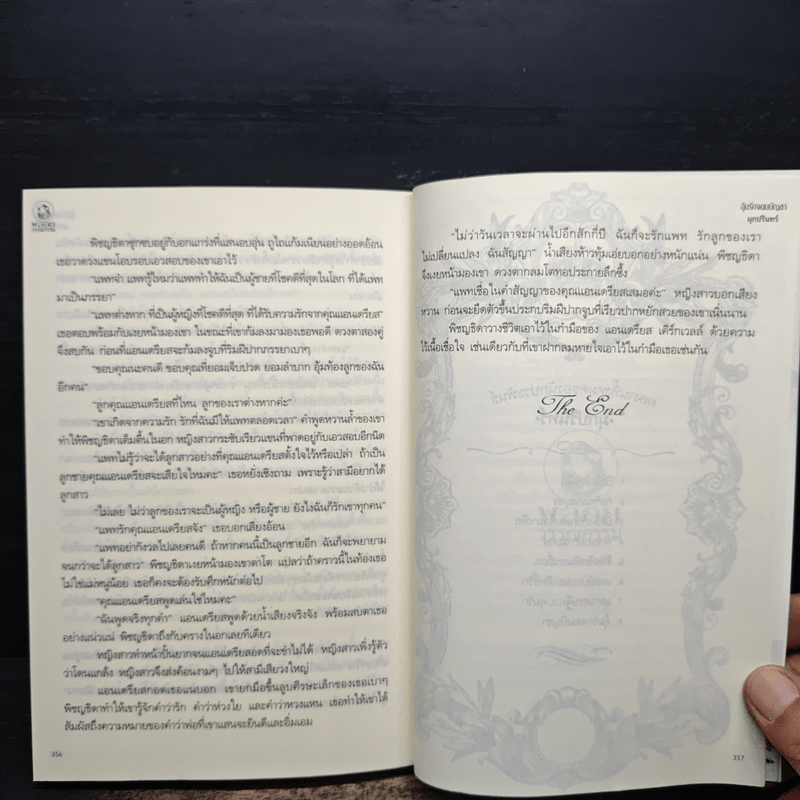 พิชญธิดาซุกซบอยู่กับอกแกร่งที่แสนอบอุ่น ถูไถแก้มเนียนอย่างออดอ้อน
เธอวาดวงแขนโอบรอบเอวสอบของเขาเอาไว้
"แพทจ๋า แพทรู้ไหมว่าแพททำให้ฉันเป็นผู้ชายที่โชคดีที่สุดในโลก ที่ได้แพท
มาเป็นภรรยา"
"แพทต่างหาก ที่เป็นผู้หญิงที่โชคดีที่สุด ที่ได้รับความรักจากคุณแอนเดรียส"
เธอตอบพร้อมกับเงยหน้ามองเขา ในขณะที่เขาก้มลงมามองเธอพอดี ดวงตาสองคู่
จึงสบกัน ก่อนที่แอนเดรียสจะก้มลงจูบที่ริมฝีปากภรรยาเบาๆ
"ขอบคุณนะคนดี ขอบคุณที่ยอมเจ็บปวด ยอมลำบาก อุ้มท้องลูกของฉัน
อีกคน"
"ลูกคุณแอนเดรียสที่ไหน ลูกของเราต่างหากค่ะ"
"เขาเกิดจากความรัก รักที่ฉันมีให้แพทตลอดเวลา" คำพูดหวานล้ำของเขา
ทำให้พิชญธิดาเต็มตื้นในอก หญิงสาวกระชับเรียวแขนที่พาดอยู่กับเอวสอบอีกนิด
"แพทไม่รู้ว่าจะได้ลูกสาวอย่างที่คุณแอนเดรียสตั้งใจไว้หรือเปล่า ถ้าเป็น
ลูกชายคุณแอนเดรียสจะเสียใจไหมคะ" เธอหยั่งเชิงถาม เพราะรู้ว่าสามีอยากได้
ลูกสาว
"ไม่เลย ไม่ว่าลูกของเราจะเป็นผู้หญิง หรือผู้ชาย ยังไงฉันก็รักเขาทุกคน"
"แพทรักคุณแอนเดรียสจัง" เธอบอกเสียงอ้อน
"แพทอย่ากังวลไปเลยคนดี ถ้าหากคนนี้เป็นลูกชายอีก ฉันก็จะพยายาม
จนกว่าจะได้ลูกสาว" พิชญธิดาเงยหน้ามองเขาตาโต แปลว่าถ้าคราวนี้ในท้องเธอ
ไม่ใช่แม่หนูน้อย เธอก็คงจะต้องรับศึกหนักต่อไป
"คุณแอนเดรียสพูดเล่นใช่ไหมคะ"
"ฉันพูดจริงทุกคำ" แอนเดรียสพูดด้วยน้ำเสียงจริงจัง พร้อมสบตาเธอ
อย่างแน่วแน่ พิชญธิดาถึงกับครางในอกเลยทีเดียว
หญิงสาวทำหน้าปั้นยากจนแอนเดรียสอดที่จะขำไม่ได้ หญิงสาวเพิ่งรู้ตัว
ว่าโดนแกล้ง หญิงสาวจึงส่งค้อนงามๆ ไปให้สามีเสียวงใหญ่
แอนเดรียสกอดเธอแนบอก เขายกมือขึ้นลูบศีรษะเล็กของเธอเบาๆ
พิชญธิดาทำให้เขารู้จักคำว่ารัก คำว่าห่วงใย และคำว่าหวงแหน เธอทำให้เขาได้
สัมผัสถึงความหมายของคำว่าพ่อที่เขาแสนจะยินดีและอิ่มเอม
356
อุ้มรักจอมบัญชา
มุกปรินทร์
"ไม่ว่าวันเวลาจะผ่านไปอีกสักกี่ปี ฉันก็จะรักแพท รักลูกของเรา
ไม่เปลี่ยนแปลง ฉันสัญญา" น้ำเสียงห้าวทุ้มเอ่ยบอกอย่างหนักแน่น พิชญธิดา
จึงเงยหน้ามองเขา ดวงตากลมโตทอประกายลึกซึ้ง
"แพทเชื่อในคำสัญญาของคุณแอนเดรียสเสมอค่ะ" หญิงสาวบอกเสียง
หวาน ก่อนจะยืดตัวขึ้นประกบริมฝีปากจูบที่เรียวปากหยักสวยของเขาเนิ่นนาน
พิชญธิดาวางชีวิตเอาไว้ในกำมือของ แอนเดรียส เคิร์กเวลล์ ด้วยความ
ไว้เนื้อเชื่อใจ เช่นเดียวกับที่เขาฝากลมหายใจเอาไว้ในกำมือเธอเช่นกัน
The End
357